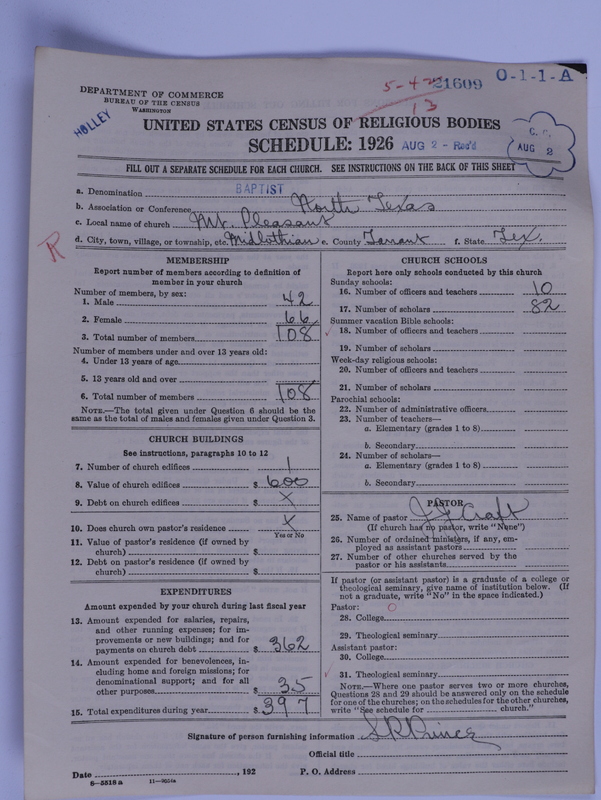 DEPARTMENT OF COMMERCE
BUREAU OF THE CENSUS
WASHINGTON
HOLLEY
5-4
21609
O-1-1-A
13
UNITED STATES CENSUS OF RELIGIOUS BODIES
SCHEDULE: 1926 AUG 2 - Rec'd
C. C.
AUG 2
FILL OUT A SEPARATE SCHEDULE FOR EACH CHURCH. SEE INSTRUCTIONS ON THE BACK OF THIS SHEET
a. Denomination BAPTIST
b. Association or Conference North Texas
c. Local name of church Mt. Pleasant
d. City, town, village, or township, etc. Midlothian e. County Tarrant f. State Tex.
R
MEMBERSHIP
Report number of members according to definition of
member in your church
Number of members, by sex:
1. Male 42
2. Female 66
3. Total number of members 108
Number of members under and over 13 years old:
4. Under 13 years of age
5. 13 years old and over
6. Total number of members 108
NOTE.—The total given under Question 6 should be the
same as the total of males and females given under Question 3.
CHURCH BUILDINGS
See instructions, paragraphs 10 to 12
7. Number of church edifices 1
8. Value of church edifices $ 600
9. Debt on church edifices $ X
10. Does church own pastor's residence X
Yes or No
11. Value of pastor's residence (if owned by
church) $
12. Debt on pastor's residence (if owned by
church) $
EXPENDITURES
Amount expended by your church during last fiscal year
13. Amount expended for salaries, repairs,
and other running expenses; for im-
provements or new buildings; and for
payments on church debt $ 362
14. Amount expended for benevolences, in-
cluding home and foreign missions; for
denominational support; and for all
other purposes $ 35
15. Total expenditures during year $ 397
CHURCH SCHOOLS
Report here only schools conducted by this church
Sunday schools:
16. Number of officers and teachers 10
17. Number of scholars 82
Summer vacation Bible schools:
18. Number of officers and teachers
19. Number of scholars
Week-day religious schools:
20. Number of officers and teachers
21. Number of scholars
Parochial schools:
22. Number of administrative officers
23. Number of teachers—
a. Elementary (grades 1 to 8)
b. Secondary
24. Number of scholars—
a. Elementary (grades 1 to 8)
b. Secondary
PASTOR
25. Name of pastor J. J. Craft
(If church has no pastor, write "None")
26. Number of ordained ministers, if any, em-
ployed as assistant pastors
27. Number of other churches served by the
pastor or his assistants
If pastor (or assistant pastor) is a graduate of a college or
theological seminary, give name of institution below. (If
not a graduate, write "No" in the space indicated.)
Pastor:
28. College
29. Theological seminary
Assistant pastor:
30. College
31. Theological seminary
NOTE.—Where one pastor serves two or more churches,
Questions 28 and 29 should be answered only on the schedule
for one of the churches; on the schedules for the other churches,
write "See schedule for church."
Signature of person furnishing information S. R. Prince
Official title
Date , 192 P. O. Address
8-5518 a 11-9054a